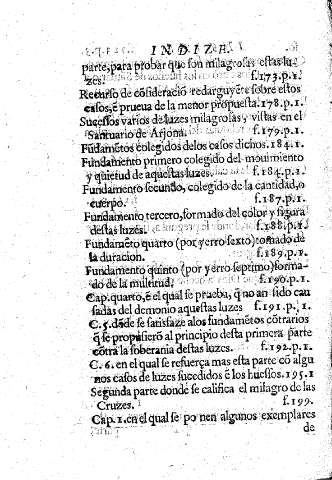 INDIZE.
parte, para probar que son milagrosas estas lu
zes. f.173.p.1.
Recurso de cõsideració redarguyēte sobre estos
casos, ē prueua de la menor propuesta. 178.p.1.
Sucessos varios de luzes milagrosas, vistas en el
Santuario de Arjona. f.179.p.1.
Fūdamētos colegidos delos casos dichos. 184.1.
Fundamento primero colegido del mouimiento
y quietud de aquestas luzes. f.184.p.1.
Fundamento secundo, colegido de la cantidad, o
cuerpo. f.187.p.1.
Fundamento tercero, formado del color y figura
destas luzes. f.188.p.1.
Fundamēto quarto (por yerro sexto) tomado de
la duracion. f.189.p.1.
Fundamento quinto (por yerro septimo) forma-
do de la multitud. f.190.p.1.
Cap. quarto, ē el qual se prueba, q̃ no an sido cau
sadas del demonio aquestas luzes f.191.p.1.
C.5. dõde se satisfaze a los fundamētos cõtrarios
q̃ se propusierõ al principio desta primera parte
cõtra la soberania destas luzes. f.192.p.1.
C.6. en el qual se refuerça mas esta parte cõ algu
nos casos de luzes sucedidos ē los huessos. 195.1
Segunda parte donde se califica el milagro de las
Cruzes. f.199.
Cap.1. en el qual se po nen algunos exemplares
de